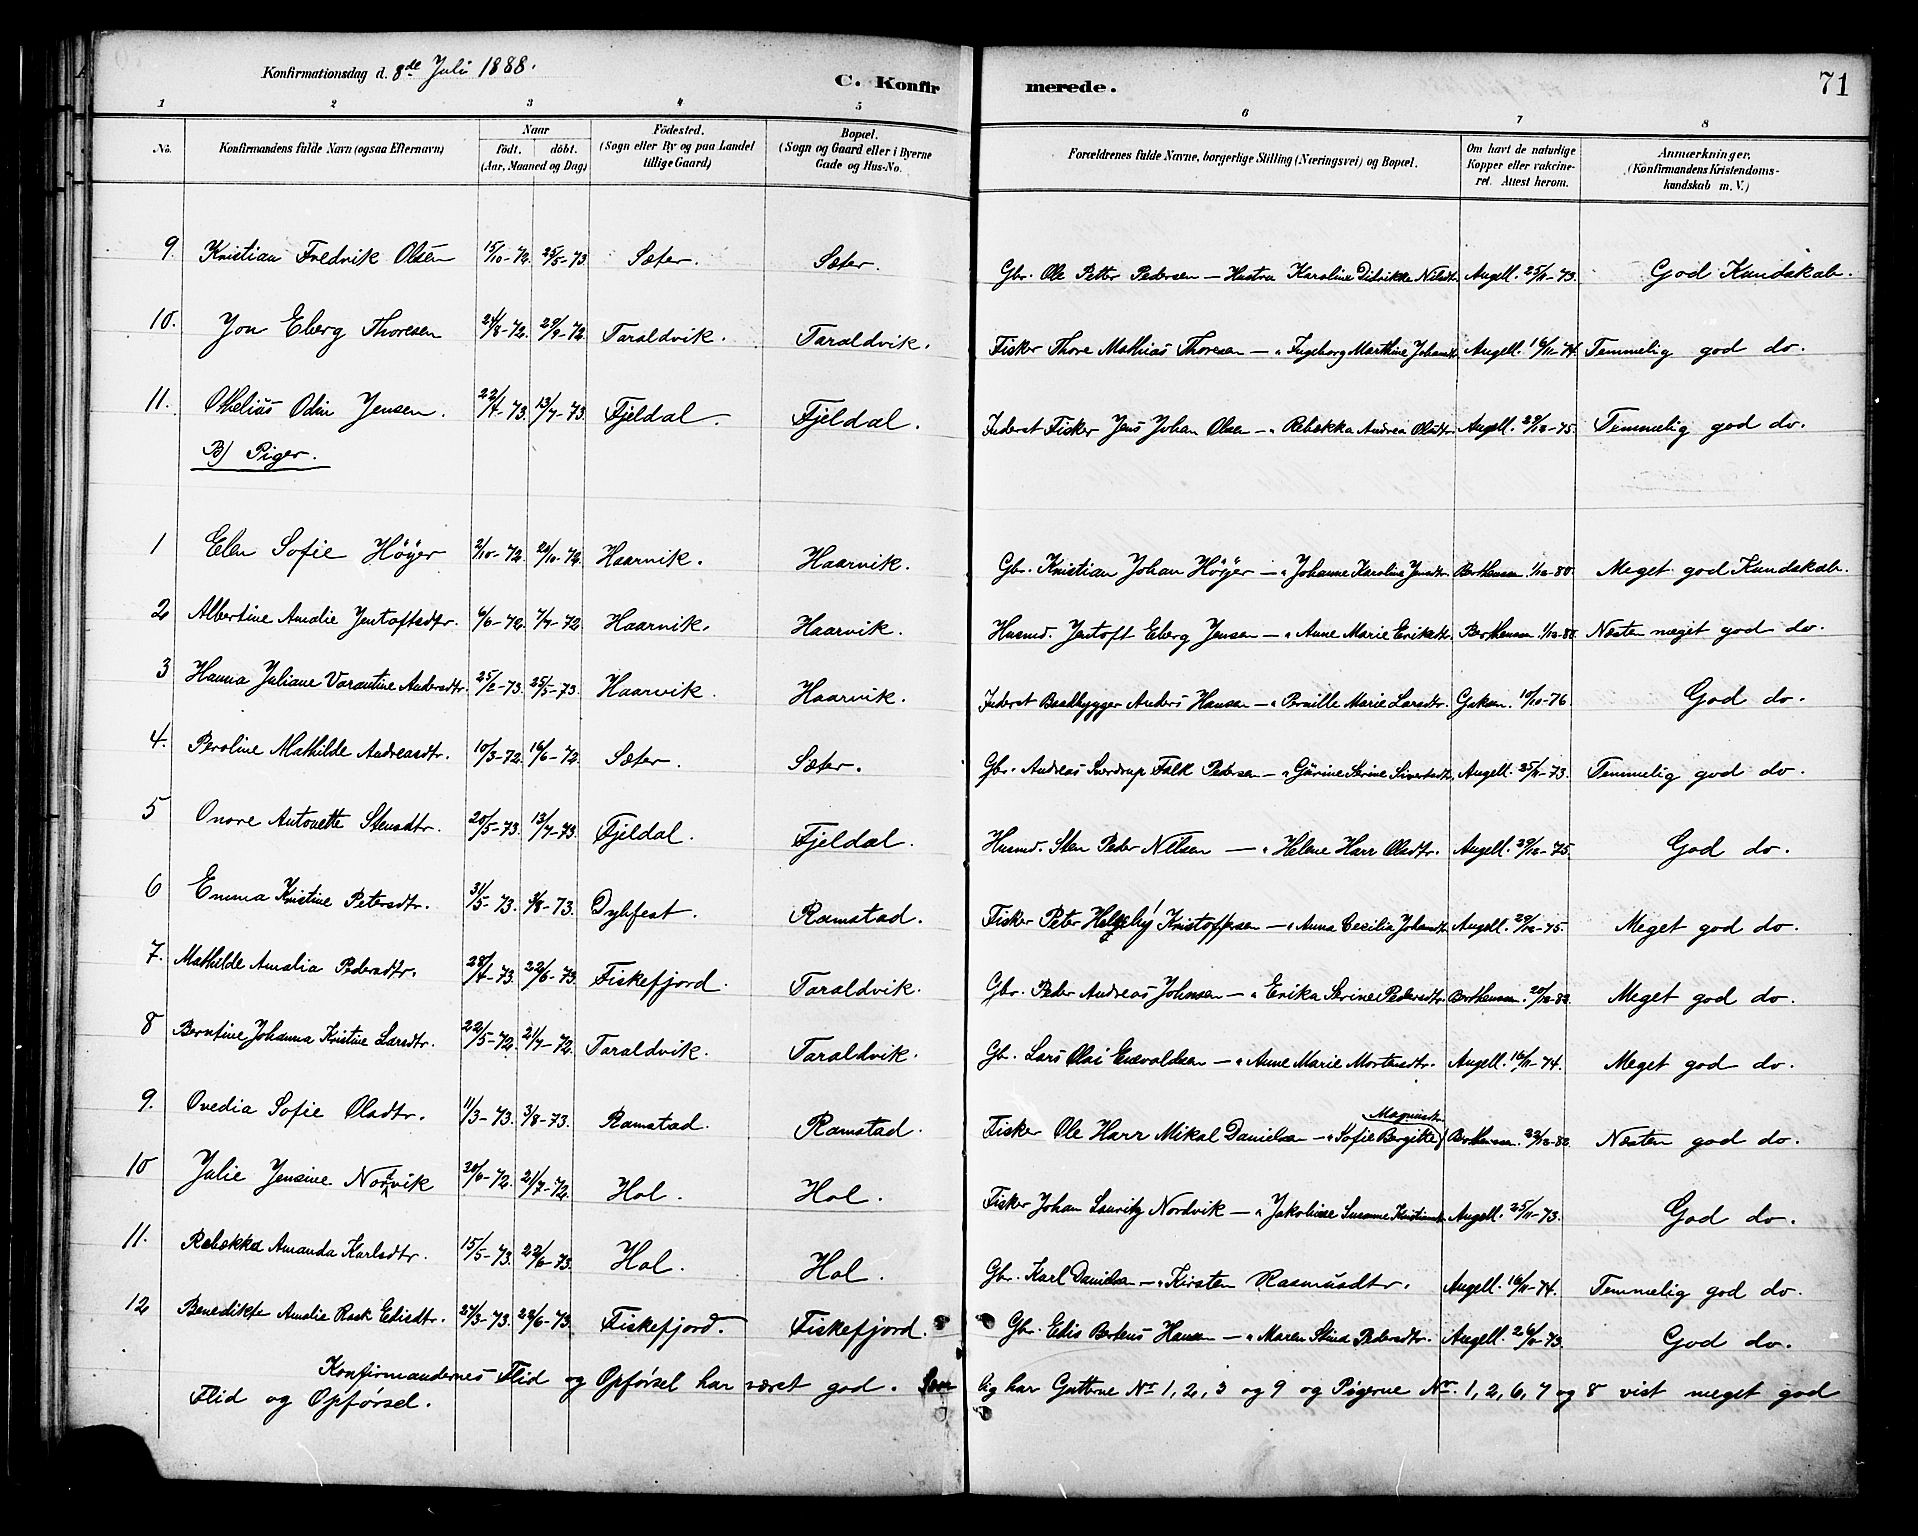 Konfirmationsdag d. 8de Juli 1888.
C. Konfirmerede. 71
1 2 3 4 5 6 7 8
No. Konfirmandens fulde Navn (ogsaa Efternavn) Naar født. døbt. (Aar, Maaned og Dag) Födested. (Sogn eller By og paa Landet tillige Gaard) Bopæl. (Sogn og Gaard eller i Byerne Gade og Hus-No. Forældrenes fulde Navne, borgerlige Stilling (Næringsvei) og Bopæl. Om havt de naturlige Kopper eller vakcineret. Attest herom. Anmærkninger. (Konfirmandens Kristendomskundskab m. V.)
9. Kristian Fredrik Olsen 15/10-72. 25/5-73. Sæter. Sæter. Gbr. Ole Petter Pedersen — Hustru Karoline Didrikke Nilsdtr. Angell. 25/11-73. God Kundskab.
10. Jon Eberg Thoresen 24/8-72. 29/9-72. Taraldvik. Taraldvik. Fisker Thore Mathias Thoresen — " Ingeborg Marthine Johansdtr. Angell. 16/11-74. Temmelig god do.
11. Othelius Odin Jensen. 22/4-73. 13/7-73. Fjeldal. Fjeldal. Inderst Fisker Jens Johan Olsen — " Rebekka Andrea Olsdtr. Angell. 29/12-75. Temmelig god do.
B) Piger.
1 Elen Sofie Høyer 2/10-72. 20/10-72. Haarvik. Haarvik. Gbr. Kristian Johan Høyer — " Johanne Karolina Jensdtr. Berthensen. 1/12-80. Meget god Kundskab.
2 Albertine Amalie Jentoftsdtr. 6/6-72. 7/7-72. Haarvik. Haarvik. Husmd. Jentoft Eberg Jensen — " Anne Marie Eriksdtr. Berthensen 1/12-80. Næsten meget god do.
3 Hanna Juliane Varantine Andersdtr. 25/2-73. 25/5-73. Haarvik. Haarvik. Inderst Baadbygger Anders Hansen — " Pernille Marie Larsdtr. 10/10-76 God do.
4. Peroline Mathilde Andreasdtr. 10/3-72. 16/6-72. Sæter. Sæter. Gbr. Andreas Sverdrup Falk Pedersen — " Gurine Serine Sivertsdtr. Angell. 25/11-73. Temmelig god do.
5 Onore Antonette Stensdtr. 20/5-73. 13/7-73. Fjeldal. Fjeldal. Husmd. Sten Peder Nilsen — " Helene Harr Olsdtr. Angell. 29/12-75. God do.
6 Emma Kristine Petersdtr. 31/5-73. 3/8-73. Dybfest. Ramstad. Fisker Peter Kristoffersen — " Anna Cecilia Johansdtr. Angell. 29/12-75. Meget god do.
7. Mathilde Amalia Pedersdtr. 28/4-73. 22/6-73. Fiskefjord. Taraldvik. Gbr. Peder Andreas Johnsen — " Erika Serine Pedersdtr. Berthensen. 20/12-82. Meget god do.
8 Berntine Johanna Kristine Larsdtr. 22/5-72. 21/7-72. Taraldvik. Taraldvik. Gb. Lars Olai Enevoldsen — " Anne Marie Mortensdtr. Angell. 16/11-74. Meget god do.
9. Ovedia Sofie Olsdtr. 11/3-73. 3/8-73. Ramstad. Ramstad. Fisker Ole Harr Mikal Danielsen — " Sofie Bergitte Magnusdtr. Berthensen. 22/12-82. Næsten god do.
10 Julie Jensine Nordvik 20/6-72. 21/7-72. Hol. Hol. Fisker Johan Lauritz Nordvik — " Jakobine Susanne Kristiansdtr. Angell. 25/11-73. God do.
11. Rebekka Amanda Karlsdtr. 15/5-73. 22/6-73. Hol. Hol. Gbr. Karl Danielsen — " Kirsten Rasmusdtr. Angell. 16/11-74. Temmelig god do.
12 Benedikte Amalie Rask Edisdtr. 27/3-73. 28/6-73. Fiskefjord. Fiskefjord. Gbr. Edis Berteus Hansen — " Maren Stina Pedersdtr. Angell. 26/11-73. God do.
Konfirmandernes Flid og Opførsel har været god. Sær lig har Gutterne No 1, 2, 3 og 9 og Pigerne No. 1, 2, 6, 7 og 8 vist meget god
Flid og Opførsel.